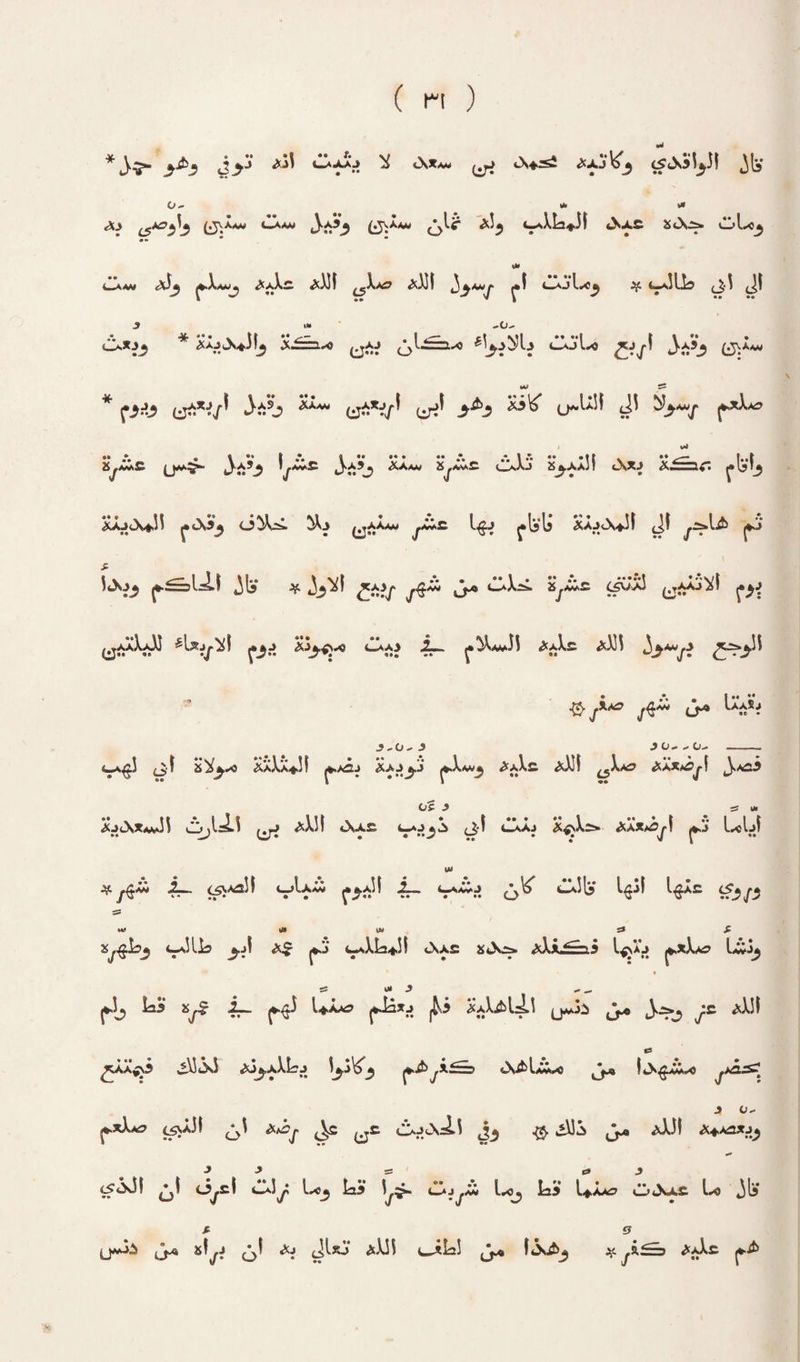 ( ٣١ )
قال الواقدي وكاتبه محمد بن سعد لا يثبت انه توفي وهو حمل *
ومات جده عبد المطلب وله ثمان سنين وقيل ست سنين واوصي به
الي ابي طالب * وماتت ام رسول الله صلي الله عليه وسلم وله ست
سنين وقيل اربع ماتت بالابواء مكان بين مكّة والمدينة * وبعث
صلعم رسولا الي الناس كافة وهو ابن اربعين سنة وقيل اربعين ويوم *
واقام بمكّة بعد النبوة ثلث عشرة سنة وقيل عشرا وقيل خمس عشرة
ثم هاجر الي المدينة فاقام بها عشر سنين بلا خلاف وقدم المدينة
يوم الاثنين لثنتي عشرة خلت من شهر ربيع الاول * قال الحاكم وبدأ
الوجع برسول الله عليه السلام في بيت ميمونة يوم الاربعاء لليلتين
بقيتا من شهر صفر
فصل ارضعته صلي الله عليه وسلم ثُوَيْبَة بضم المثلثة مولاة ابي لهب
اياما ثم ارضعته حليمة بنت ابي ذؤيب عبد الله بن الحارث السعدية
وروي عنها انها قالت كان يشب في اليوم شباب الصبي في شهر *
ونشأ صلعم يتيما فكفله جده عبد المطلب ثم عمه ابو طالب وطهره
الله عز وجل من دنس الجاهلية فلم يعظم صنما لهم في عمره قط ولم
يحضر مشهدا من مشاهد كفرهم وكانوا يطلبونه لذلك فيمتنع
ويعصمه الله من ذلك * وفي الحديث عن علي رضه ان النبي صلعم
قال ما عبدت صنما قط وما شربت خمرا قط وما زلت اعرف ان الذي
هم عليه كفر * وهذا من لطف الله تعالي به ان برأه من دنس